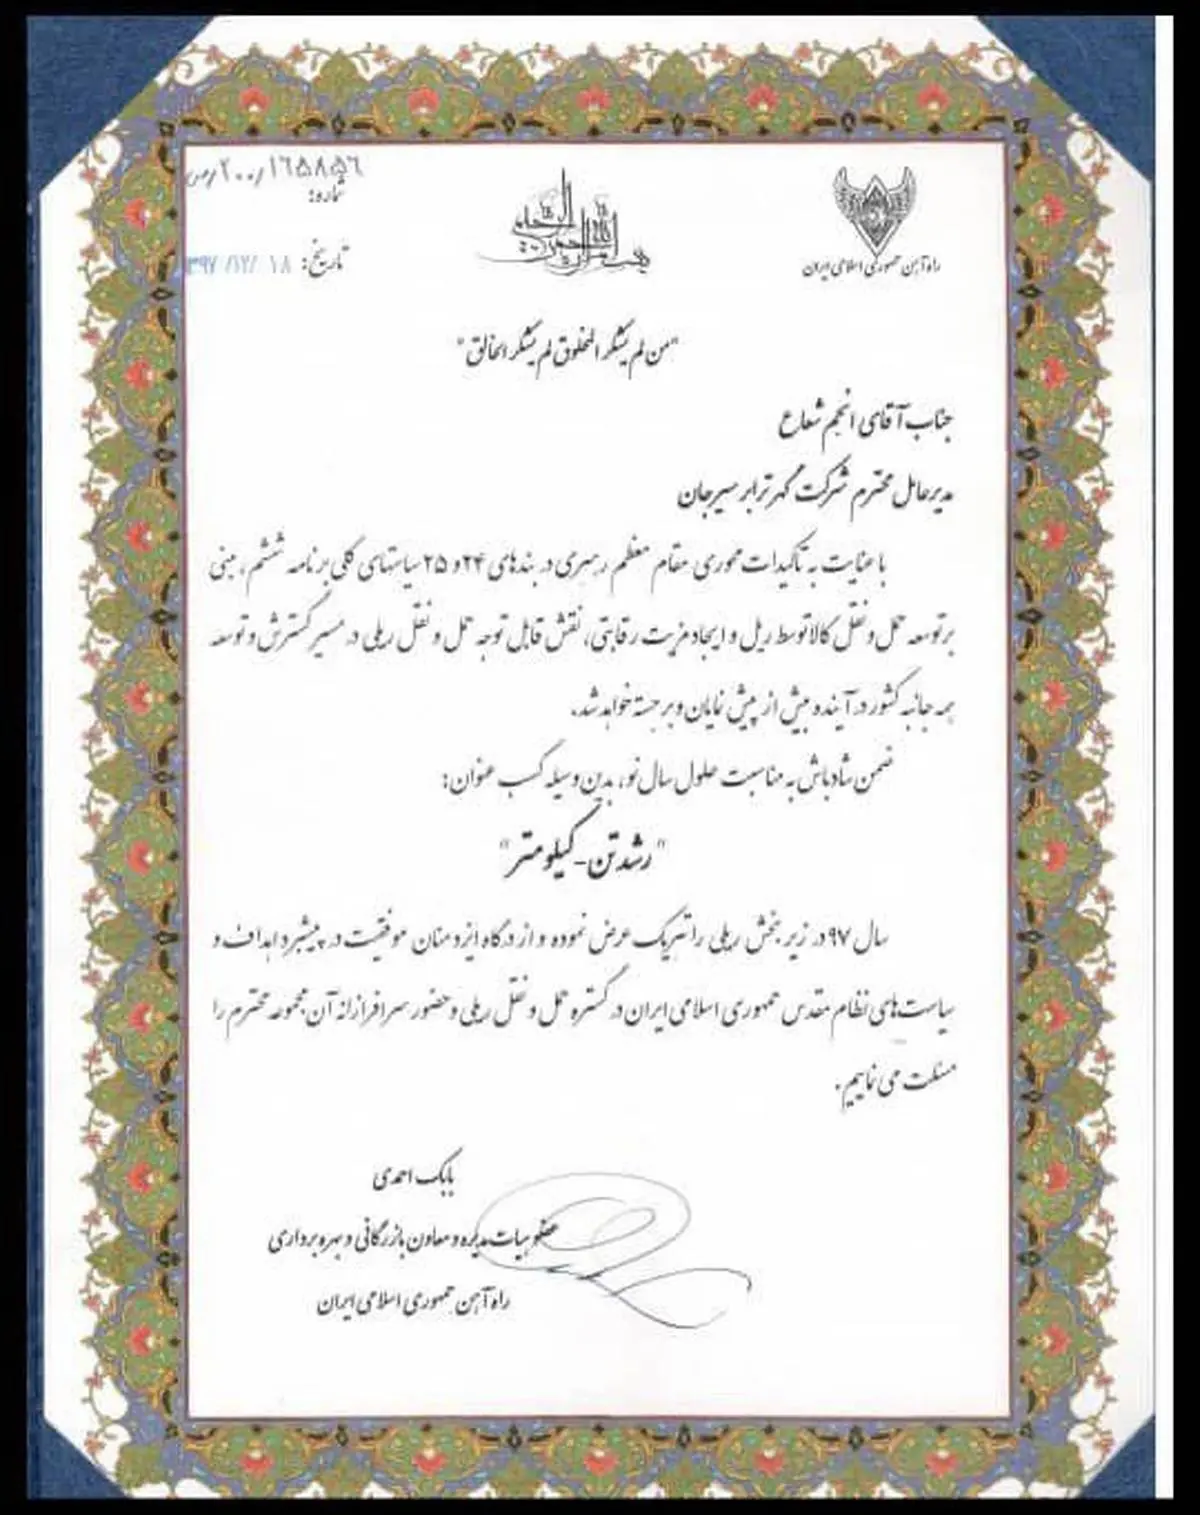 ۲۰۰/۱۶۵۸۵۶/ص
شماره:
تاریخ: ۱۳۹۷/۱۲/۱۸
بسم الله الرحمن الرحیم
راه آهن جمهوری اسلامی ایران
"من لم یشکر المخلوق لم یشکر الخالق"
جناب آقای انجم شعاع
مدیرعامل محترم شرکت گهر ترابر سیرجان
با عنایت به تاکیدات محوری مقام معظم رهبری در بندهای ۲۴ و ۲۵ سیاستهای کلی برنامه ششم، مبنی
بر توسعه حمل و نقل کالا توسط ریل و ایجاد مزیت رقابتی، نقش قابل توجه حمل و نقل ریلی در مسیر گسترش و توسعه
همه جانبه کشور در آینده بیش از پیش نمایان و برجسته خواهد شد.
ضمن شادباش به مناسبت حلول سال نو، بدین وسیله کسب عنوان:
"رشد تن-کیلومتر"
سال ۹۷ در زیر بخش ریلی را تبریک عرض نموده و از درگاه ایزد منان موفقیت در پیشبرد اهداف و
سیاست های نظام مقدس جمهوری اسلامی ایران در گستره حمل و نقل ریلی و حضور سرافرازانه آن مجموعه محترم را
مسئلت می نماییم.
بابک احمدی
عضو هیات مدیره و معاون بازرگانی و بهره برداری
راه آهن جمهوری اسلامی ایران